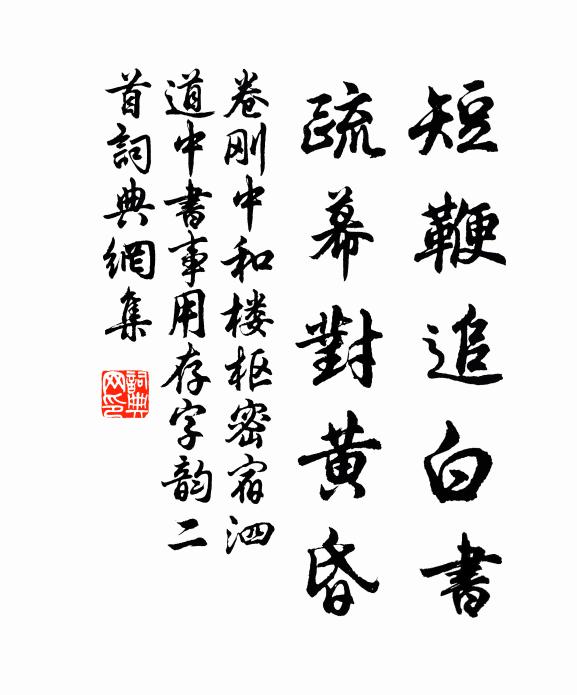 短鞭追白書
疏幕對黃昏
卷刚中和楼枢密宿泗
道中書事用存字韵二
首詞典網集
詞典網印